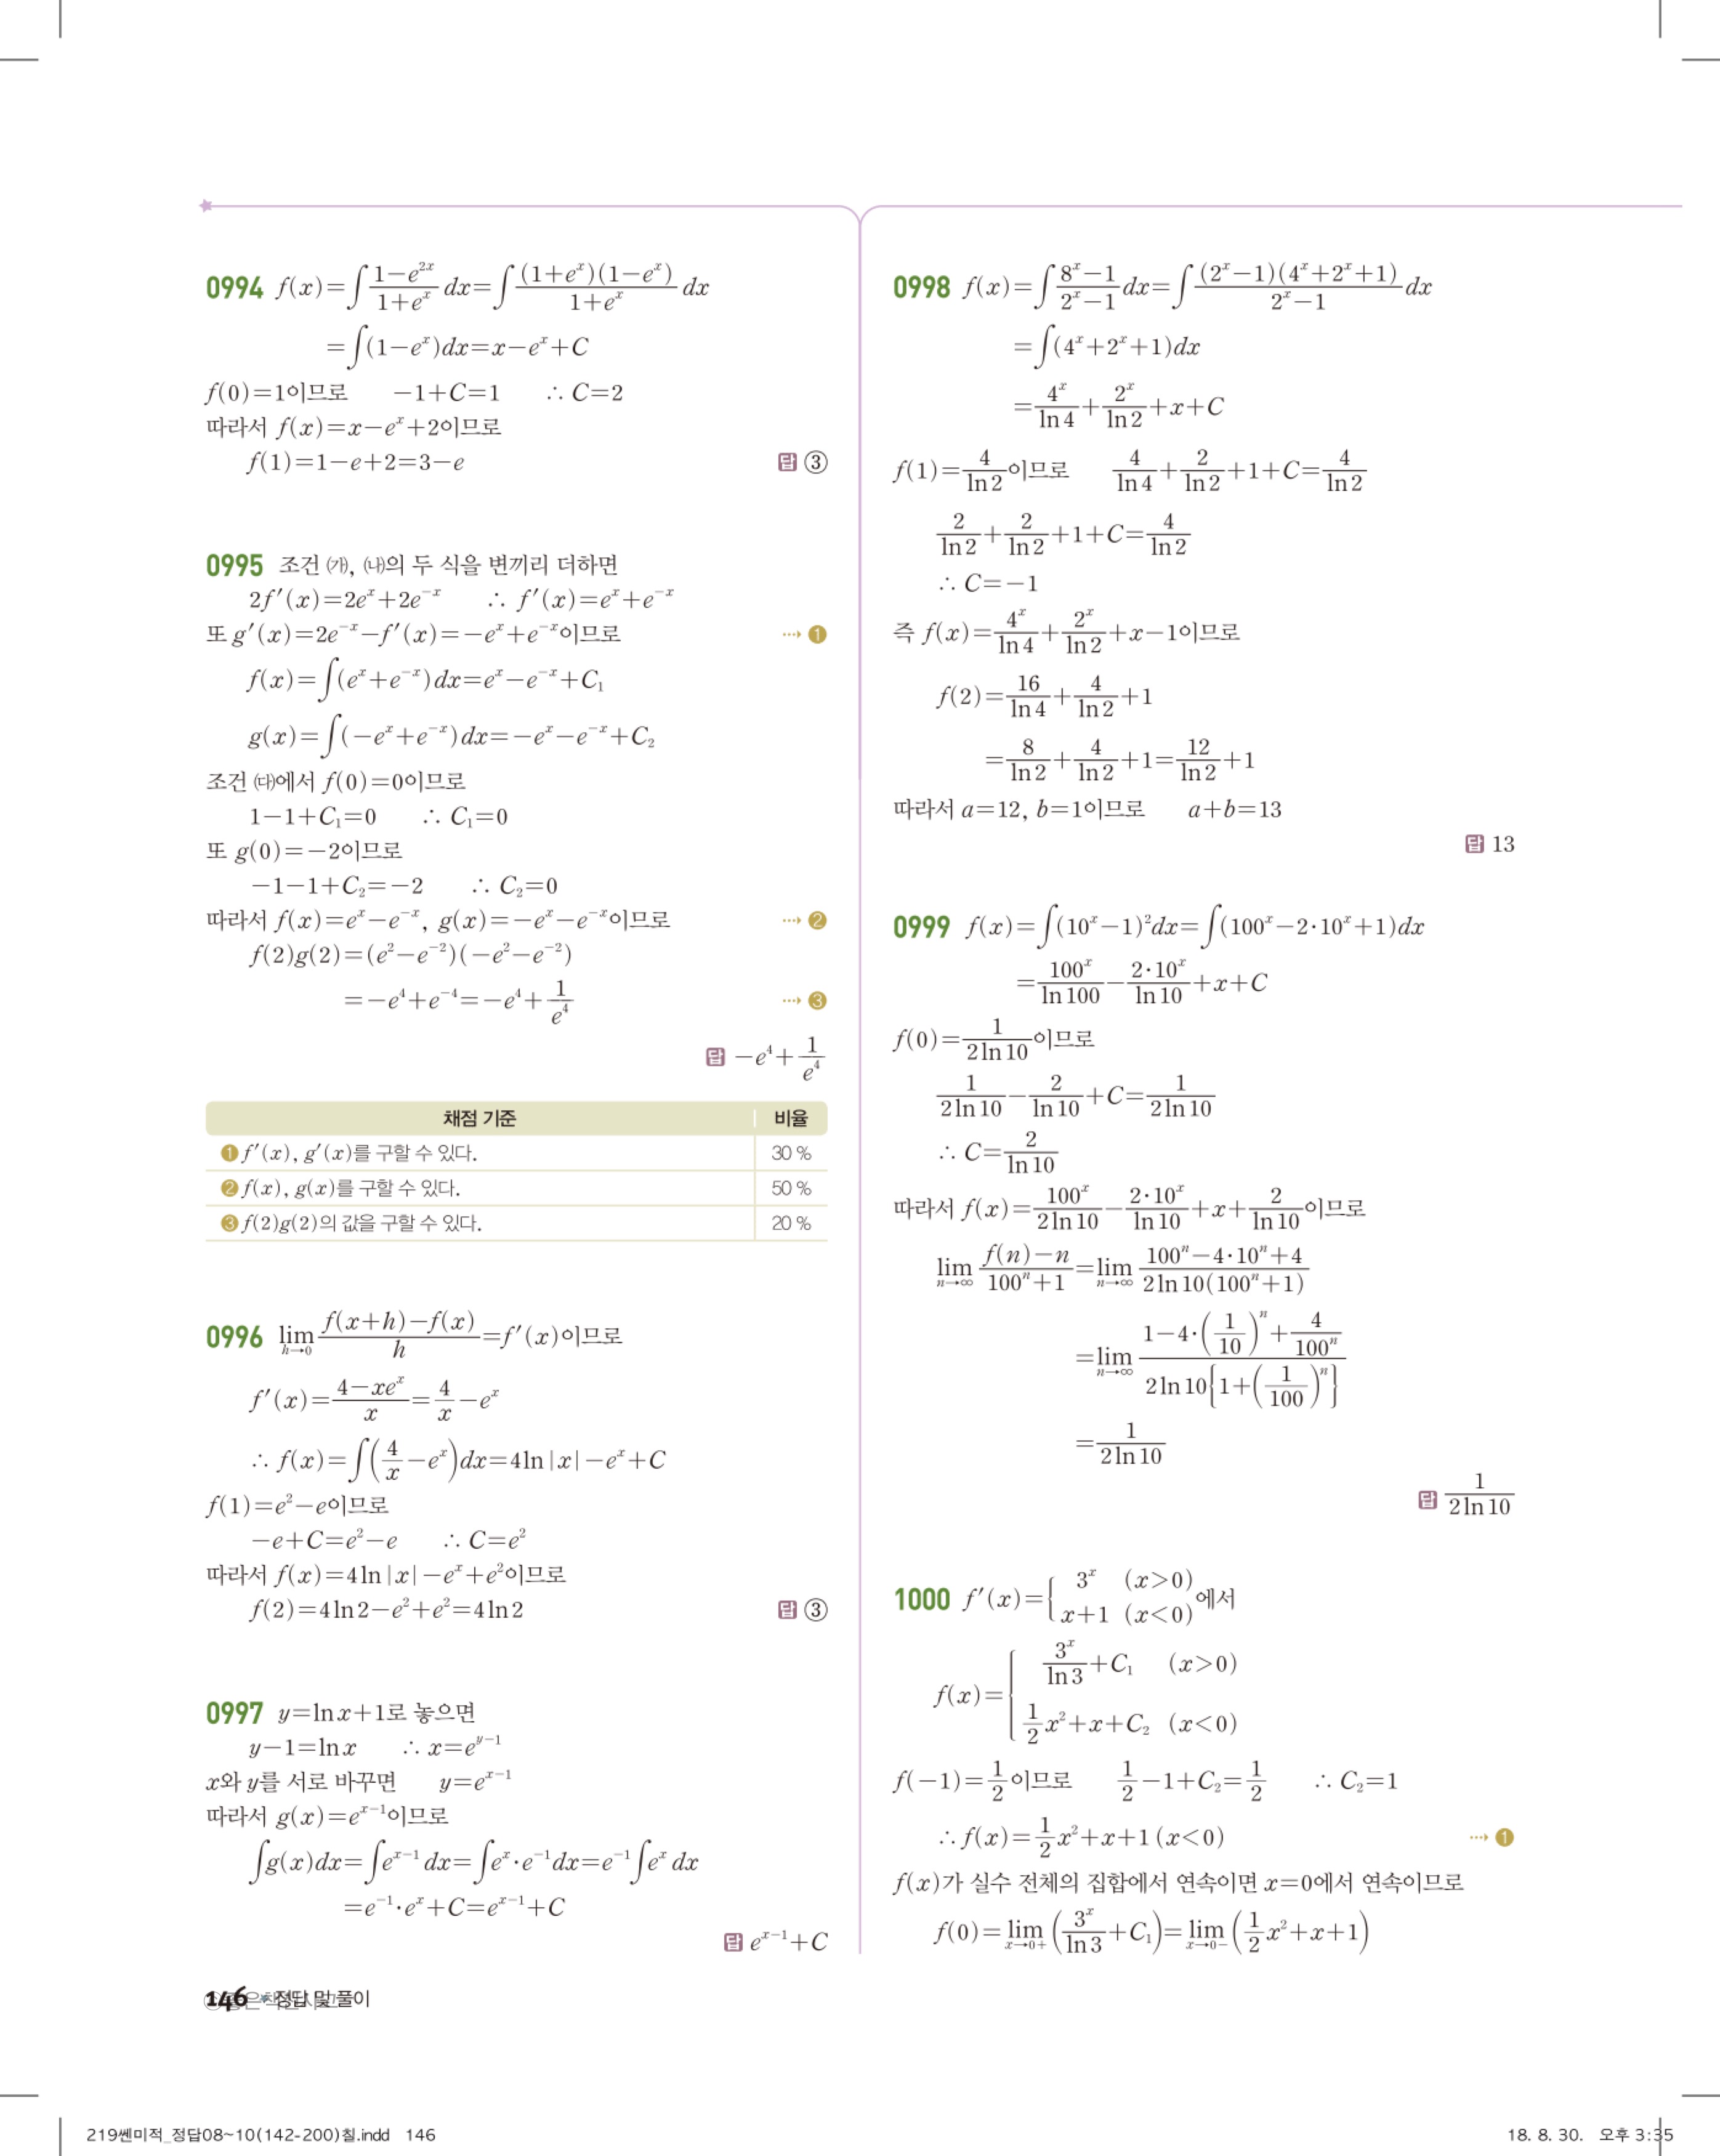 0994 f(x)=∫(1-e^{2x})/(1+e^x) dx=∫((1+e^x)(1-e^x))/(1+e^x) dx
=∫(1-e^x)dx=x-e^x+C
f(0)=1이므로 -1+C=1 ∴ C=2
따라서 f(x)=x-e^x+2이므로
f(1)=1-e+2=3-e 답 ③
0995 조건 ㈎, ㈏의 두 식을 변끼리 더하면
2f'(x)=2e^x+2e^{-x} ∴ f'(x)=e^x+e^{-x}
또 g'(x)=2e^{-x}-f'(x)=-e^x+e^{-x}이므로 … ❶
f(x)=∫(e^x+e^{-x})dx=e^x-e^{-x}+C₁
g(x)=∫(-e^x+e^{-x})dx=-e^x-e^{-x}+C₂
조건 ㈐에서 f(0)=0이므로
1-1+C₁=0 ∴ C₁=0
또 g(0)=-2이므로
-1-1+C₂=-2 ∴ C₂=0
따라서 f(x)=e^x-e^{-x}, g(x)=-e^x-e^{-x}이므로 … ❷
f(2)g(2)=(e²-e^{-2})(-e²-e^{-2})
=-e⁴+e^{-4}=-e⁴+1/e⁴ … ❸
답 -e⁴+1/e⁴
채점 기준 비율
❶ f'(x), g'(x)를 구할 수 있다. 30 %
❷ f(x), g(x)를 구할 수 있다. 50 %
❸ f(2)g(2)의 값을 구할 수 있다. 20 %
0996 lim_{h→0} (f(x+h)-f(x))/h=f'(x)이므로
f'(x)=(4-xe^x)/x=4/x-e^x
∴ f(x)=∫(4/x-e^x)dx=4ln|x|-e^x+C
f(1)=e²-e이므로
-e+C=e²-e ∴ C=e²
따라서 f(x)=4ln|x|-e^x+e²이므로
f(2)=4ln2-e²+e²=4ln2 답 ③
0997 y=lnx+1로 놓으면
y-1=lnx ∴ x=e^{y-1}
x와 y를 서로 바꾸면 y=e^{x-1}
따라서 g(x)=e^{x-1}이므로
∫g(x)dx=∫e^{x-1}dx=∫e^x·e^{-1}dx=e^{-1}∫e^x dx
=e^{-1}·e^x+C=e^{x-1}+C
답 e^{x-1}+C
0998 f(x)=∫(8^x-1)/(2^x-1) dx=∫((2^x-1)(4^x+2^x+1))/(2^x-1) dx
=∫(4^x+2^x+1)dx
=4^x/ln4+2^x/ln2+x+C
f(1)=4/ln2이므로 4/ln4+2/ln2+1+C=4/ln2
2/ln2+2/ln2+1+C=4/ln2
∴ C=-1
즉 f(x)=4^x/ln4+2^x/ln2+x-1이므로
f(2)=16/ln4+4/ln2+1
=8/ln2+4/ln2+1=12/ln2+1
따라서 a=12, b=1이므로 a+b=13
답 13
0999 f(x)=∫(10^x-1)²dx=∫(100^x-2·10^x+1)dx
=100^x/ln100-2·10^x/ln10+x+C
f(0)=1/(2ln10)이므로
1/(2ln10)-2/ln10+C=1/(2ln10)
∴ C=2/ln10
따라서 f(x)=100^x/(2ln10)-2·10^x/ln10+x+2/ln10이므로
lim_{n→∞} (f(n)-n)/(100^n+1)=lim_{n→∞} (100^n-4·10^n+4)/(2ln10(100^n+1))
=lim_{n→∞} (1-4·(1/10)^n+4/100^n)/(2ln10{1+(1/100)^n})
=1/(2ln10)
답 1/(2ln10)
1000 f'(x)={3^x (x>0), x+1 (x<0)에서
f(x)={3^x/ln3+C₁ (x>0), (1/2)x²+x+C₂ (x<0)
f(-1)=1/2이므로 1/2-1+C₂=1/2 ∴ C₂=1
∴ f(x)=(1/2)x²+x+1 (x<0) … ❶
f(x)가 실수 전체의 집합에서 연속이면 x=0에서 연속이므로
f(0)=lim_{x→0+}(3^x/ln3+C₁)=lim_{x→0-}((1/2)x²+x+1)
146 정답 및 풀이
219쎈미적_정답08~10(142-200)칠.indd 146 18. 8. 30. 오후 3:35